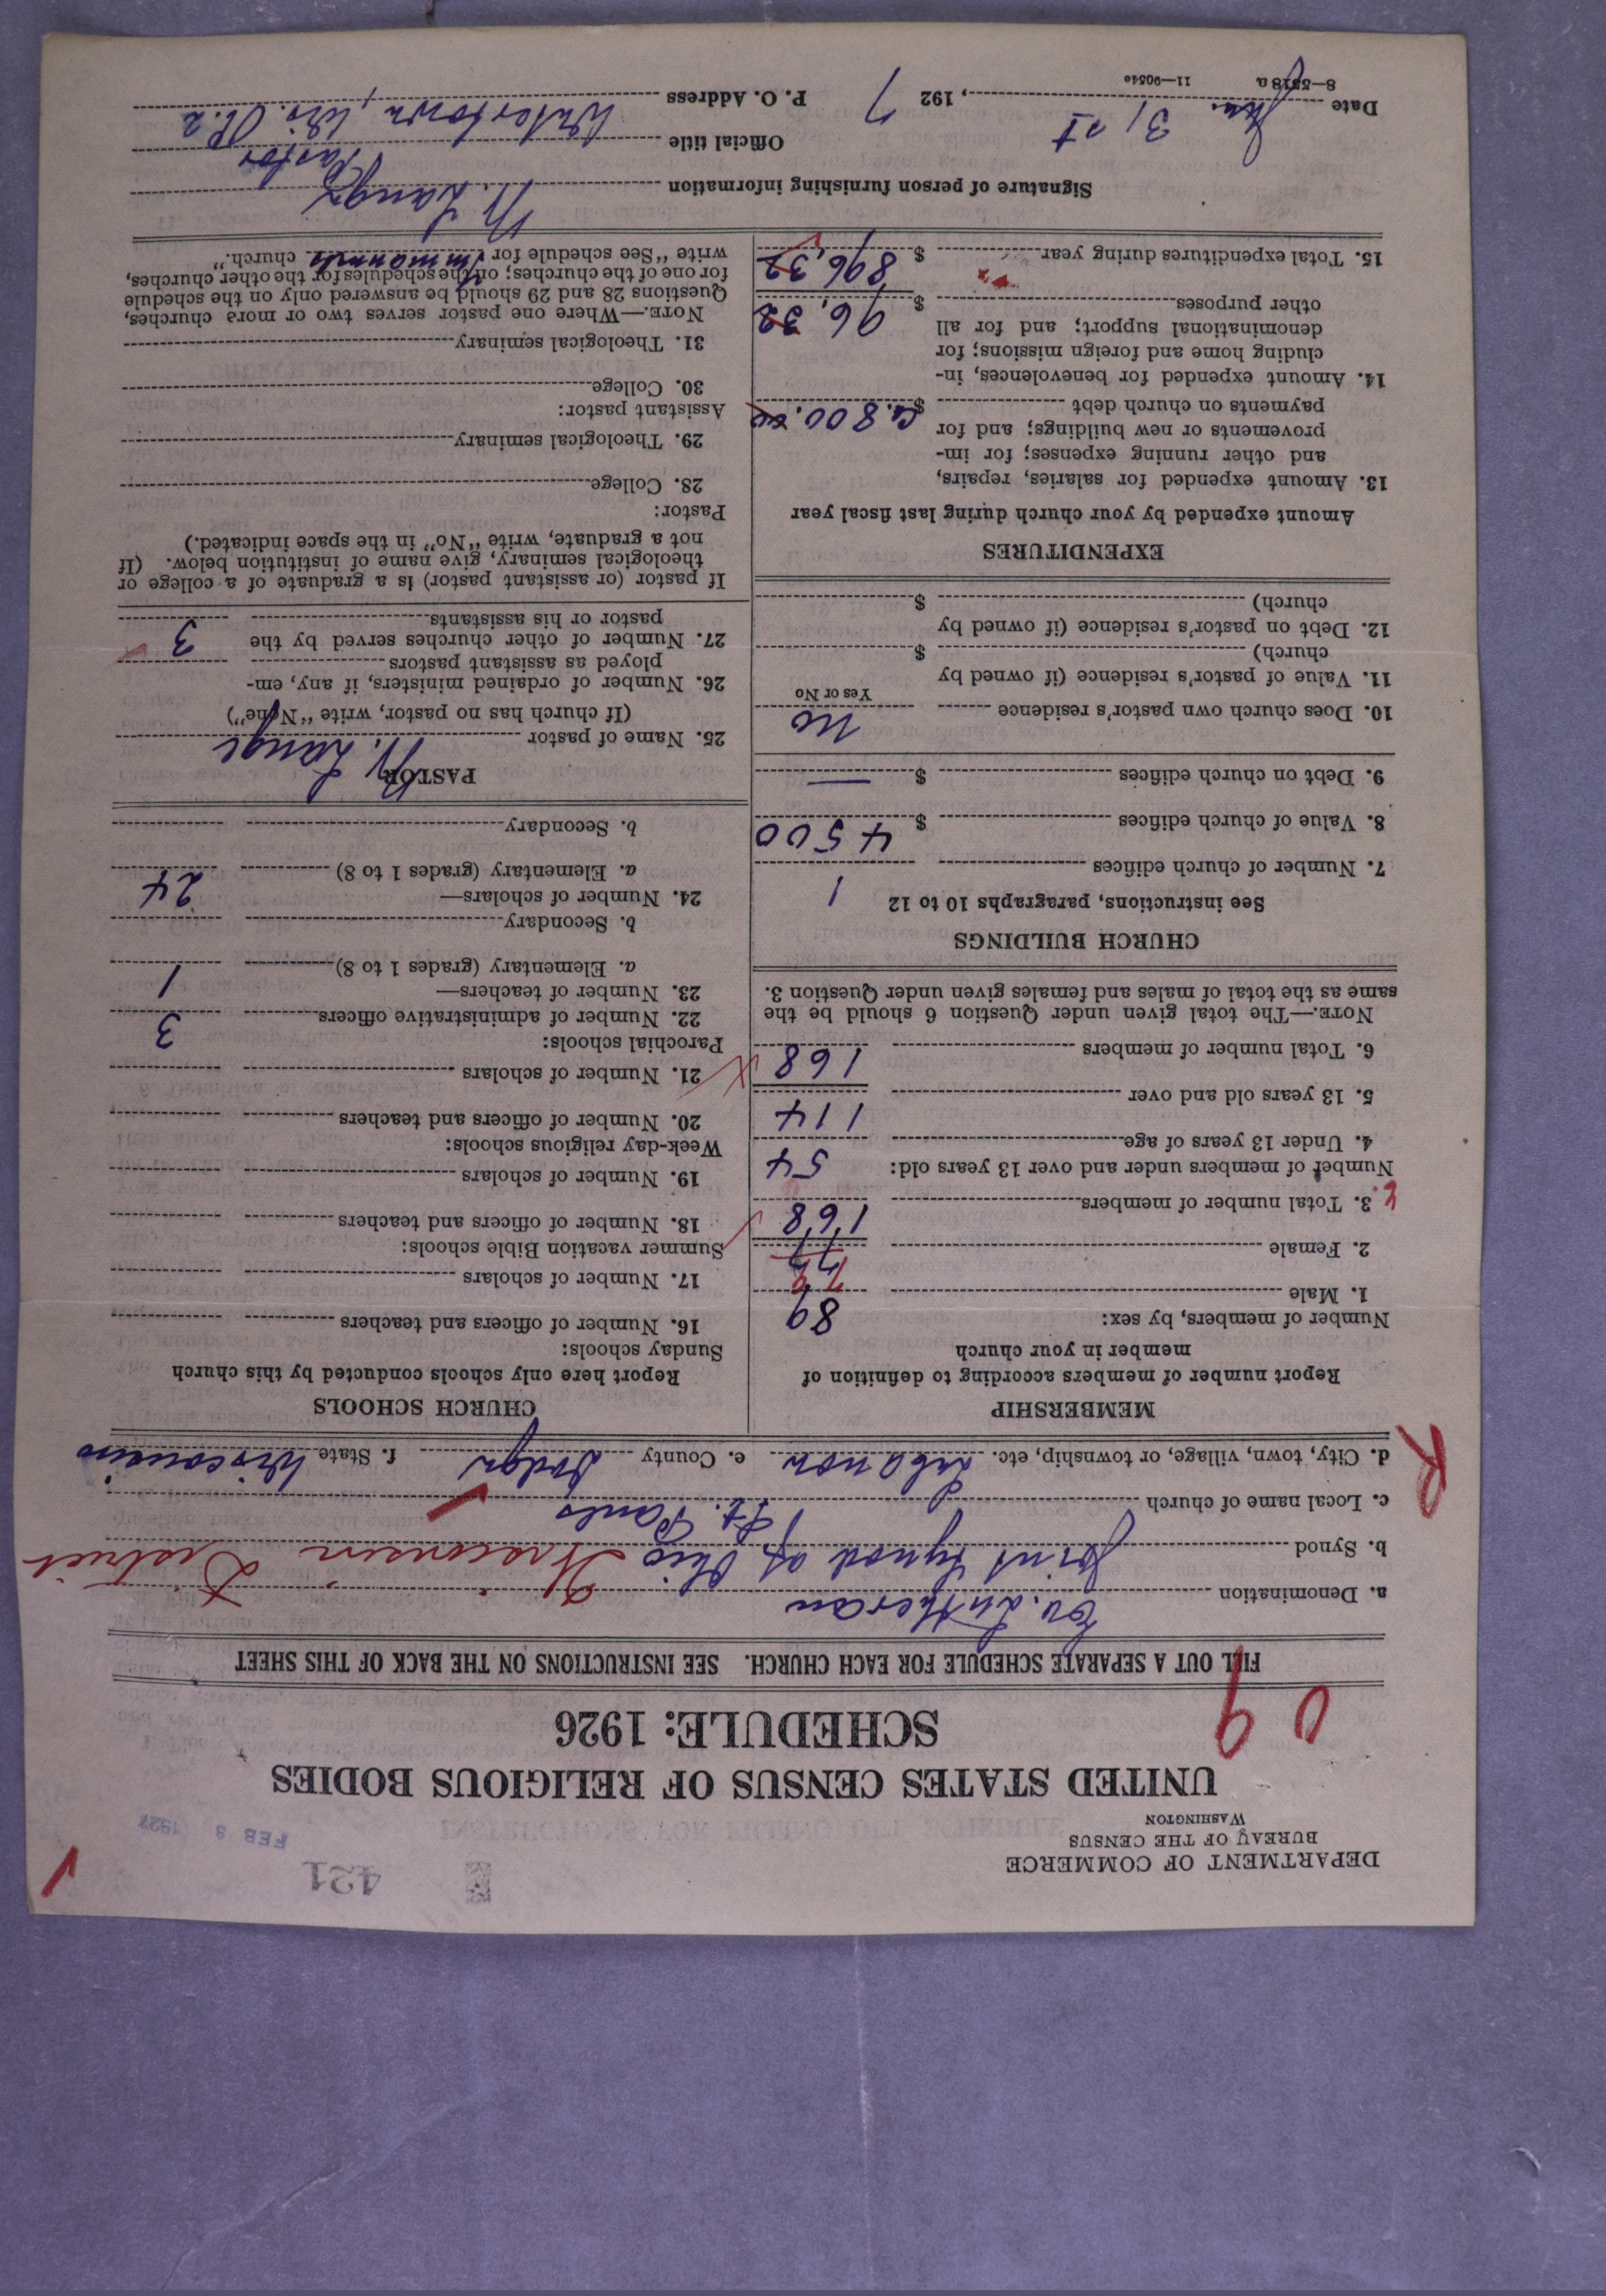 DEPARTMENT OF COMMERCE
BUREAU OF THE CENSUS
WASHINGTON
421
FEB 3 1927
UNITED STATES CENSUS OF RELIGIOUS BODIES
SCHEDULE: 1926
09
FILL OUT A SEPARATE SCHEDULE FOR EACH CHURCH. SEE INSTRUCTIONS ON THE BACK OF THIS SHEET
a. Denomination Ev. Lutheran
b. Synod Joint Synod of Ohio Wisconsin District
c. Local name of church St. Pauls
d. City, town, village, or township, etc. Lebanon e. County Dodge f. State Wisconsin
R
MEMBERSHIP
Report number of members according to definition of
member in your church
Number of members, by sex:
1. Male 89
2. Female 79
3. Total number of members 168
Number of members under and over 13 years old:
4. Under 13 years of age 54
5. 13 years old and over 114
6. Total number of members 168
NOTE.—The total given under Question 6 should be the
same as the total of males and females given under Question 3.
CHURCH BUILDINGS
See instructions, paragraphs 10 to 12
7. Number of church edifices 1
8. Value of church edifices $ 4500
9. Debt on church edifices $ —
10. Does church own pastor's residence no
Yes or No
11. Value of pastor's residence (if owned by
church) $
12. Debt on pastor's residence (if owned by
church) $
EXPENDITURES
Amount expended by your church during last fiscal year
13. Amount expended for salaries, repairs,
and other running expenses; for im-
provements or new buildings; and for
payments on church debt $ ca. 800.00
14. Amount expended for benevolences, in-
cluding home and foreign missions; for
denominational support; and for all
other purposes $ 96,32
15. Total expenditures during year $ 896,32
CHURCH SCHOOLS
Report here only schools conducted by this church
Sunday schools:
16. Number of officers and teachers
17. Number of scholars
Summer vacation Bible schools:
18. Number of officers and teachers
19. Number of scholars
Week-day religious schools:
20. Number of officers and teachers
21. Number of scholars
Parochial schools:
22. Number of administrative officers 3
23. Number of teachers—
a. Elementary (grades 1 to 8) 1
b. Secondary
24. Number of scholars—
a. Elementary (grades 1 to 8) 24
b. Secondary
PASTOR
25. Name of pastor W. Lange
(If church has no pastor, write "None")
26. Number of ordained ministers, if any, em-
ployed as assistant pastors
27. Number of other churches served by the
pastor or his assistants 3
If pastor (or assistant pastor) is a graduate of a college or
theological seminary, give name of institution below. (If
not a graduate, write "No" in the space indicated.)
Pastor:
28. College
29. Theological seminary
Assistant pastor:
30. College
31. Theological seminary
NOTE.—Where one pastor serves two or more churches,
Questions 28 and 29 should be answered only on the schedule
for one of the churches; on the schedules for the other churches,
write "See schedule for Immanuels church."
Signature of person furnishing information W. Lange
Official title Pastor
Date Jan. 31st, 1927 P. O. Address Watertown, Wis. R. 2
8—5518a 11—9054a